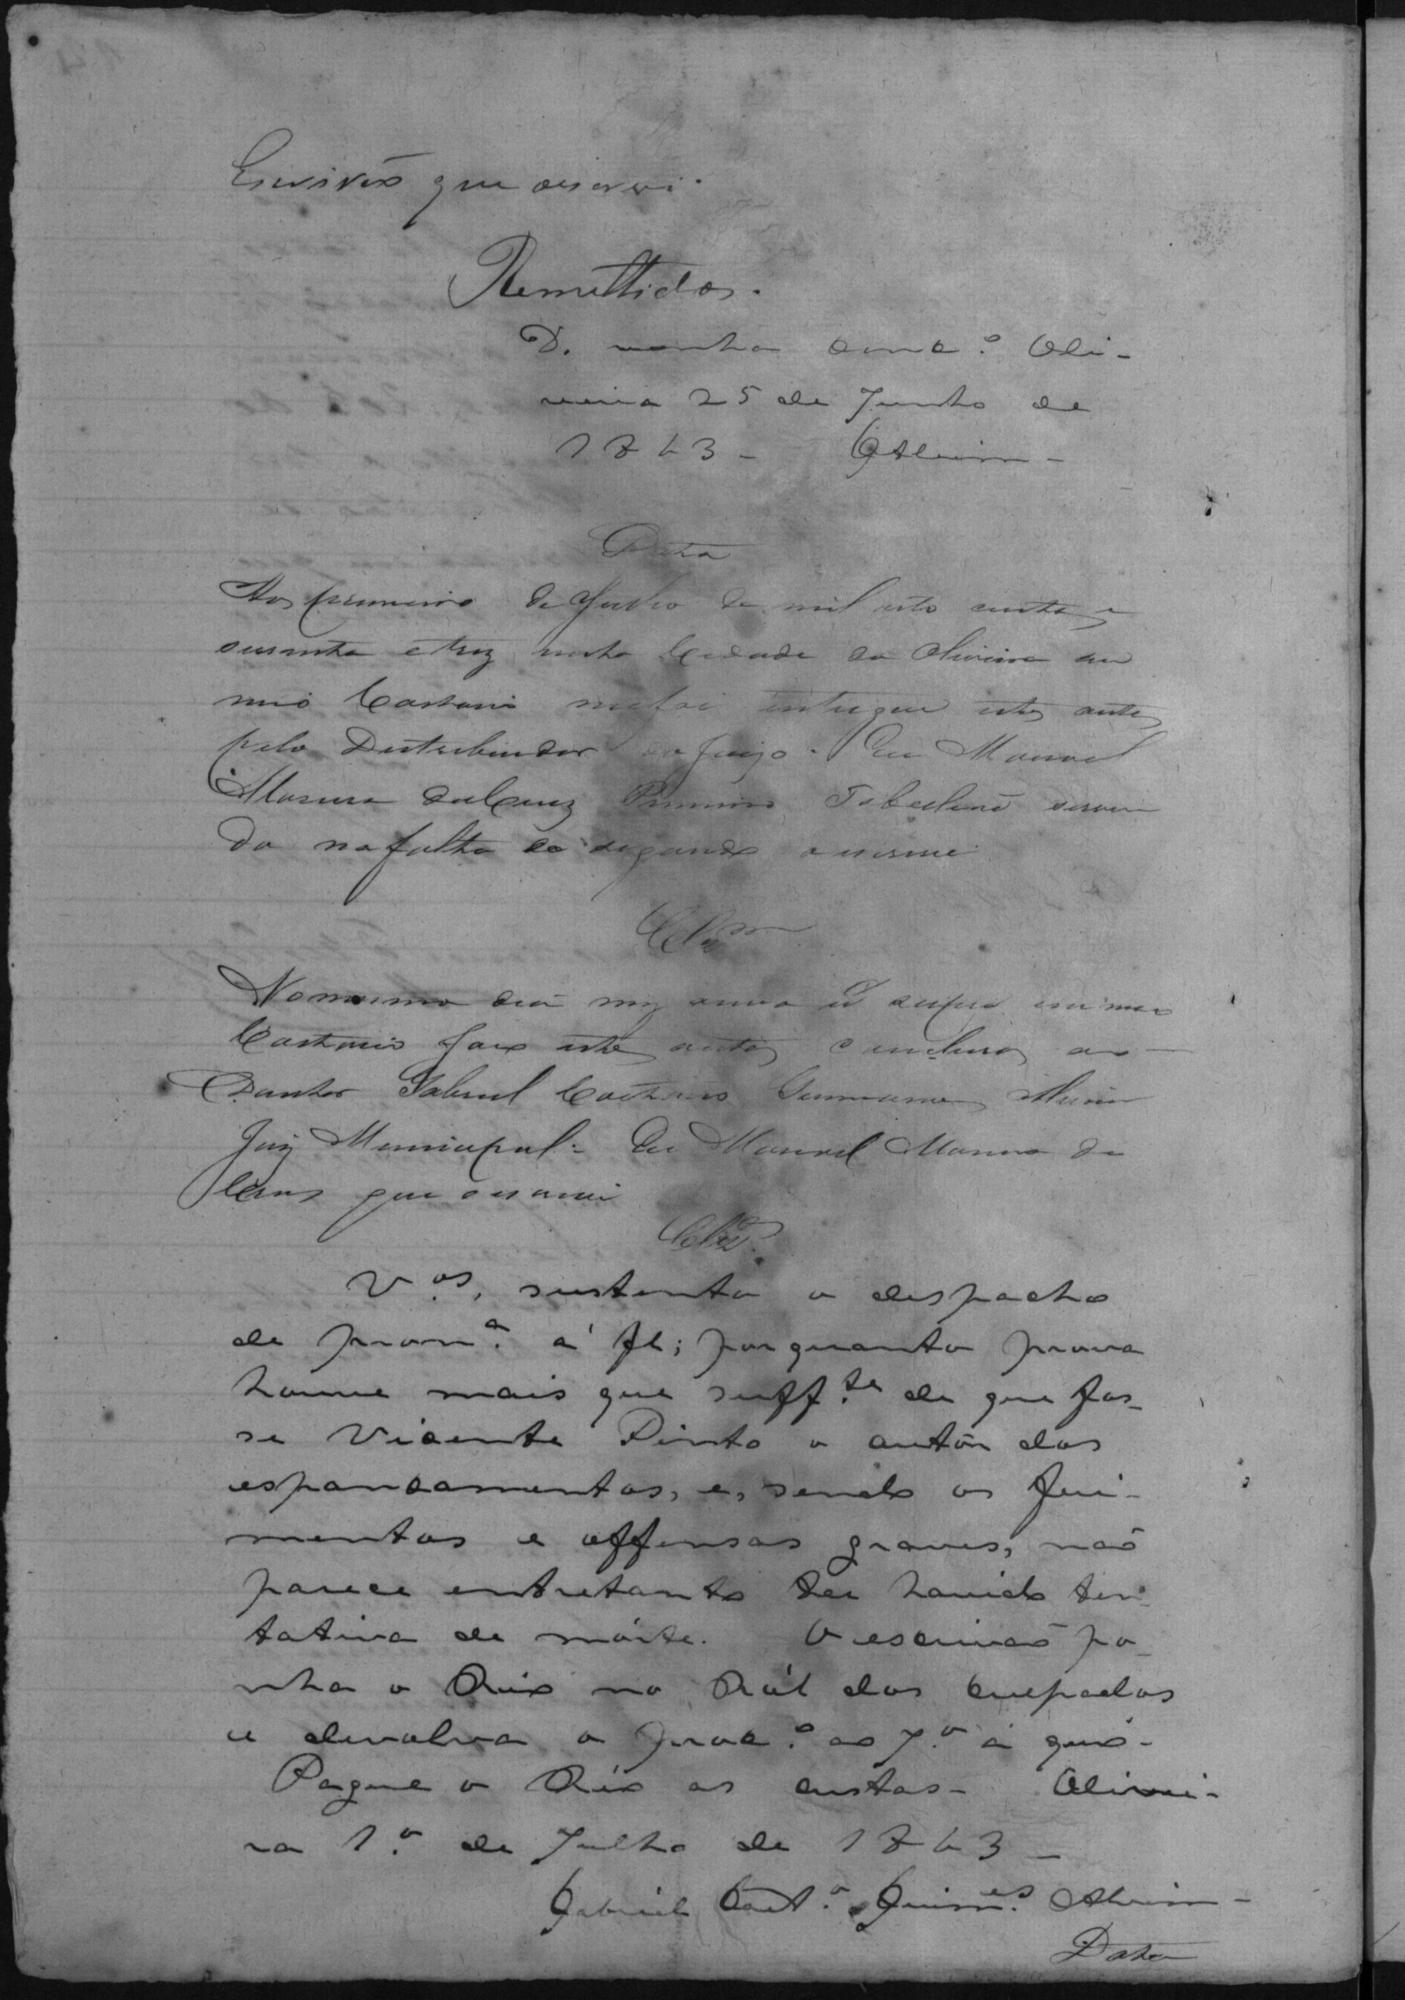 Escrivão que escrevi.
Remettidos.
D. venha conc.º Oli-
veira 25 de Junho de
1863 - GAlvim -
Data
Aos primeiro de Julho de mil oito centos e
sessenta e trez nesta Cidade da Oliveira em
meo Cartorio me foi entregue estes autos
pelo Destribuidor do Juizo. Eu Manoel
da Cruz Primeiro Tabelião serven
do na falta do segundo o escrevi
Cls.ᵐ
No mesmo dia mez anno e em meo
Cartorio faço estes autos concluzos ao
Doutor Gabriel Caetano Guimaraes Alvim
Juiz Municipal. Eu Manoel da
Cruz que escrevi
Cls.
V.ᵒˢ, sustento o despacho
de pron.ᵃ á fl; porquanto prova
houve mais que suff.ᵗᵉ de que fos-
se Vicente Pinto o autôr dos
espancamentos, e, sendo os feri-
mentos e offensas graves, não
parece entretanto ter havido ten-
tativa de mórte. O escrivão po-
nha o Réo no Ról dos Culpados
e devolva o proc.º ao J.º á quó.
Pague o Réo as custas - Olivei-
ra 1.º de Julho de 1863 -
Gabriel Caet.º Guim.ᵉˢ Alvim -
Data